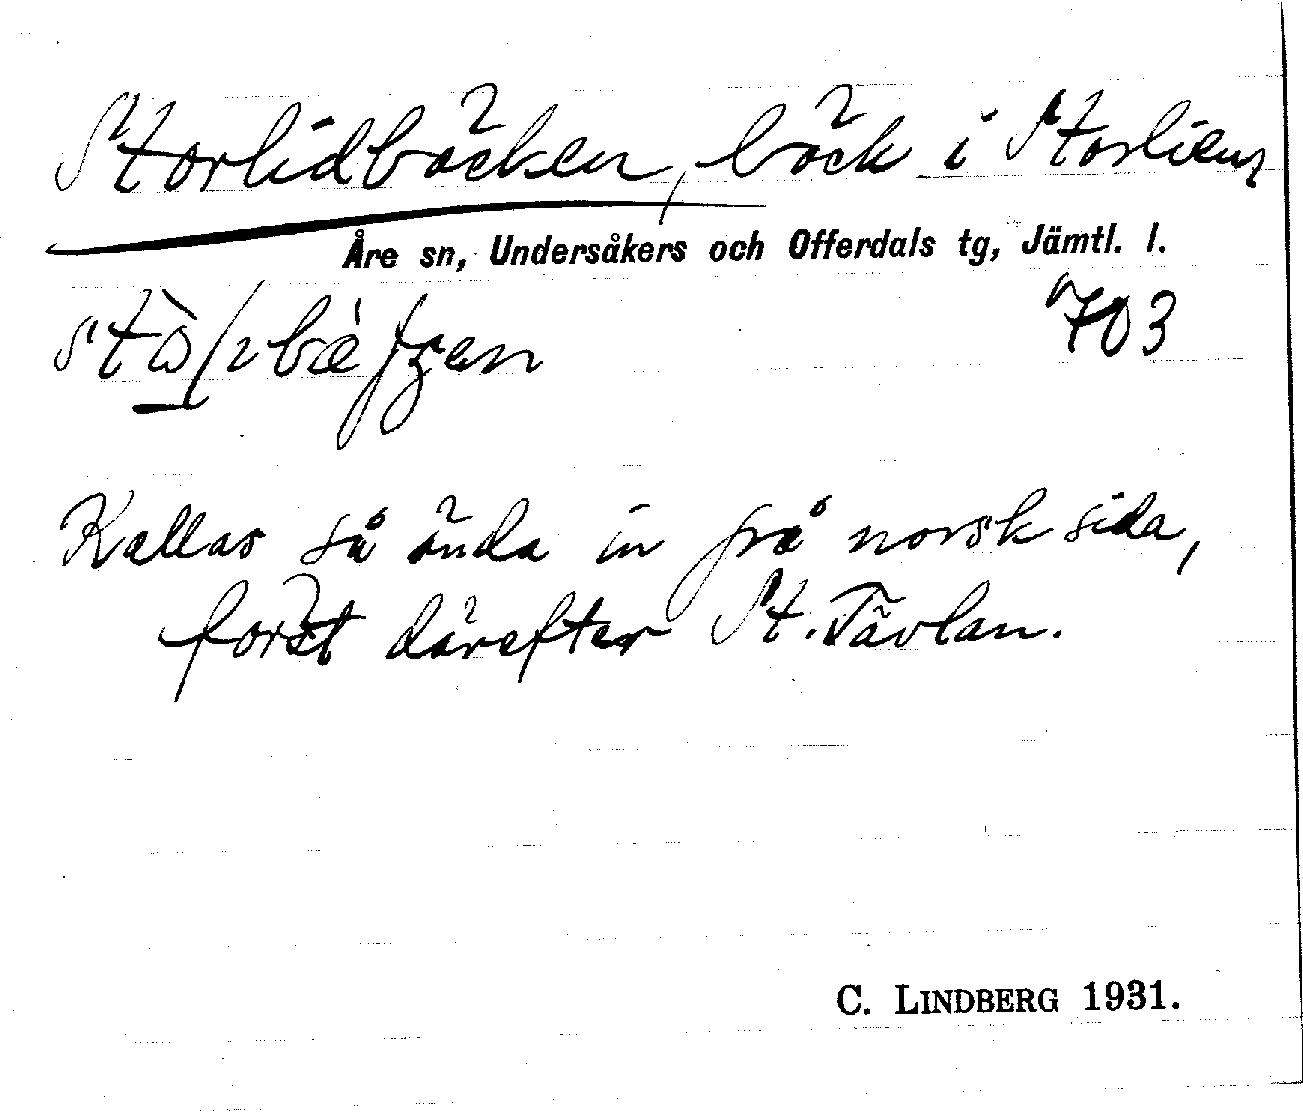 Storlidbäcken, bäck i Storliens
Åre sn, Undersåkers och Offerdals tg, Jämtl. l.
703
Kallas så ända in på norsk sida,
först därefter St. Tävlan.
C. LINDBERG 1931.